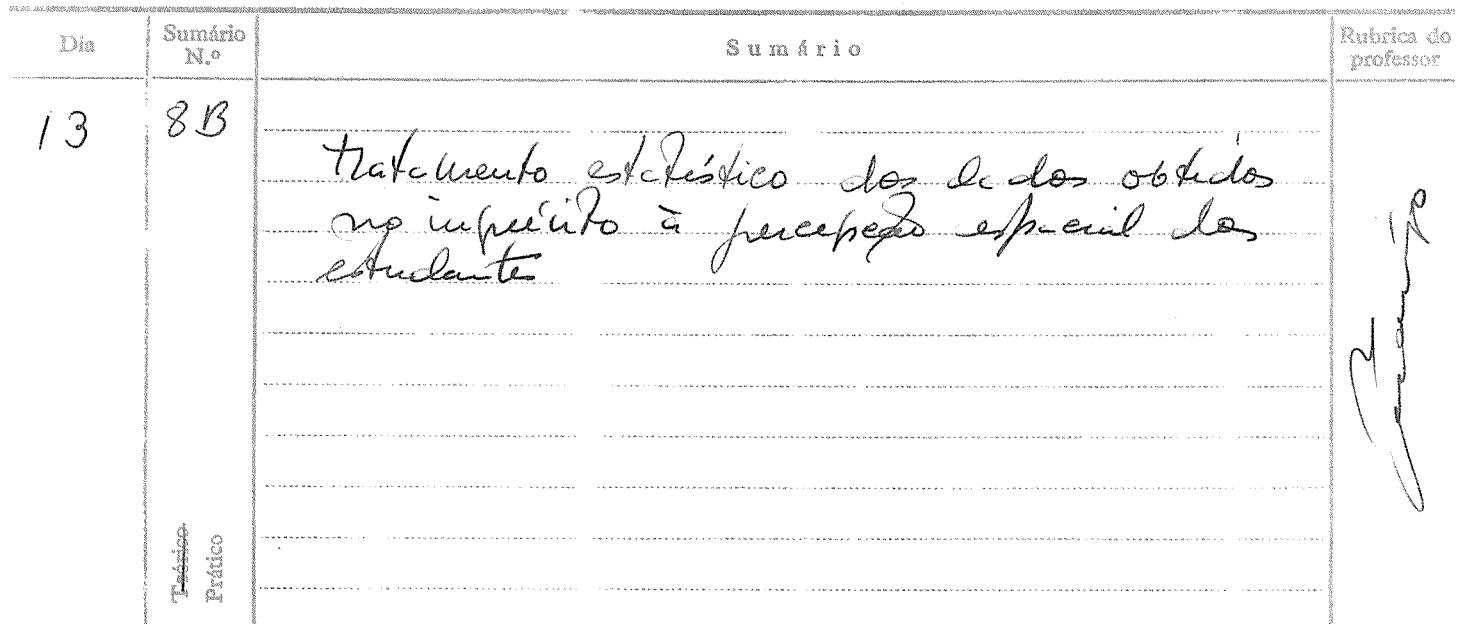 Dia
Sumário N.º
Sumário
Rubrica do professor
13
8B
tratamento estatístico dos dados obtidos
no inquérito à percepção espacial dos
estudantes
Teórico
Prático